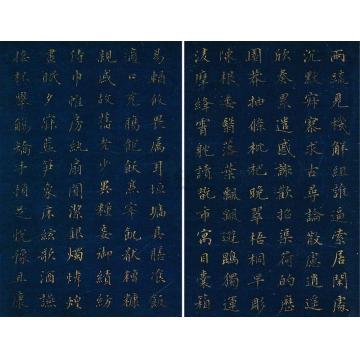 兩疏見機解組誰逼索居閑處
沉默寂寥求古尋論散慮逍遙
欣奏累遣慼謝歡招渠荷的歷
園莽抽條枇杷晚翠梧桐早彫
陳根委翳落葉飄颻遊鵾獨運
凌摩絳霄耽讀翫市寓目囊箱
易輶攸畏屬耳垣墻具膳飡飯
適口充腸飽飫烹宰飢猒糟糠
親戚故舊老少異糧妾御績紡
侍巾帷房紈扇圓潔銀燭煒煌
晝眠夕寐藍笋象床絃歌酒讌
接杯舉觴矯手頓足悅豫且康